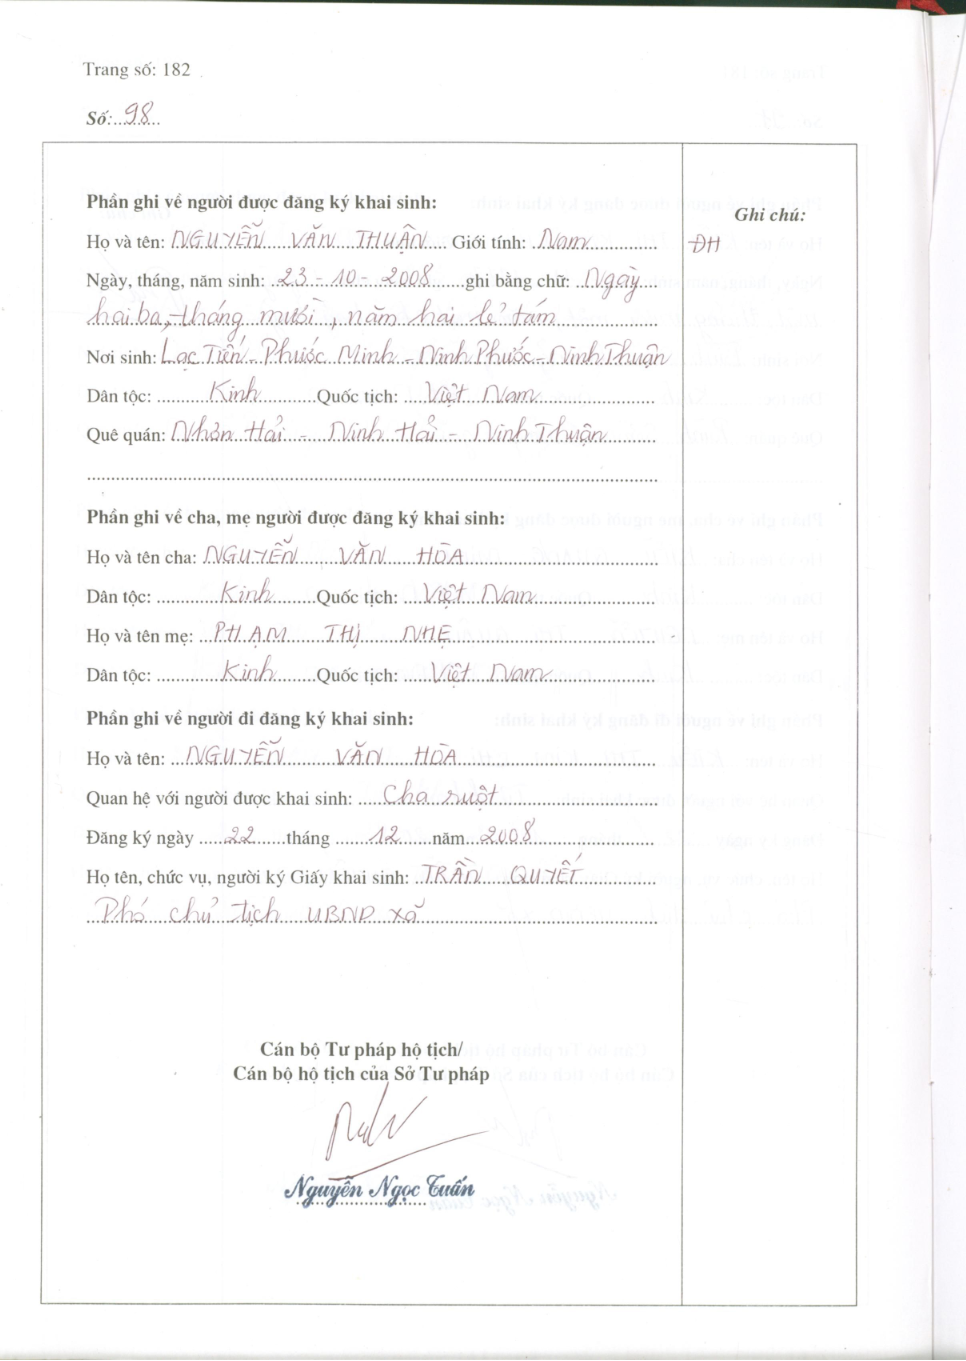 Trang số: 182
Số: 98
Phần ghi về người được đăng ký khai sinh:
Ghi chú:
Họ và tên: NGUYỄN VĂN THUẬN Giới tính: Nam
ĐH
Ngày, tháng, năm sinh: 23-10-2008 ghi bằng chữ: Ngày
hai ba, tháng mười, năm hai lẻ tám
Nơi sinh: Lạc Tiến - Phước Minh - Ninh Phước - Ninh Thuận
Dân tộc: Kinh Quốc tịch: Việt Nam
Quê quán: Nhơn Hải - Ninh Hải - Ninh Thuận
Phần ghi về cha, mẹ người được đăng ký khai sinh:
Họ và tên cha: NGUYỄN VĂN HÒA
Dân tộc: Kinh Quốc tịch: Việt Nam
Họ và tên mẹ: PHẠM THỊ NHẸ
Dân tộc: Kinh Quốc tịch: Việt Nam
Phần ghi về người đi đăng ký khai sinh:
Họ và tên: NGUYỄN VĂN HÒA
Quan hệ với người được khai sinh: Cha ruột
Đăng ký ngày 22 tháng 12 năm 2008
Họ tên, chức vụ, người ký Giấy khai sinh: TRẦN QUYẾT
Phó chủ tịch UBND xã
Cán bộ Tư pháp hộ tịch/
Cán bộ hộ tịch của Sở Tư pháp
Nguyễn Ngọc Tuấn